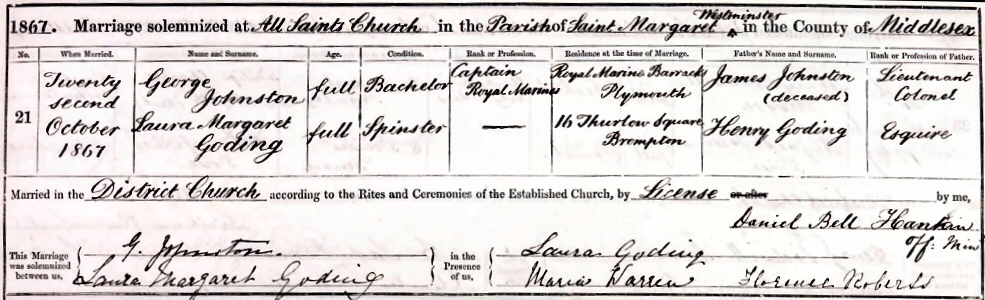 1867. Marriage solemnized at All Saints Church in the Parish of Saint Margaret Westminster in the County of Middlesex
No. When Married. Name and Surname. Age. Condition. Rank or Profession. Residence at the time of Marriage. Father's Name and Surname. Rank or Profession of Father.
21 Twenty second October 1867
George Johnston full Bachelor Captain Royal Marines Royal Marine Barracks Plymouth James Johnston (deceased) Lieutenant Colonel
Laura Margaret Goding full Spinster — 16 Thurlow Square Brompton Henry Goding Esquire
Married in the District Church according to the Rites and Ceremonies of the Established Church, by License or after by me,
Daniel Bell Hankin
Off: Min
This Marriage was solemnized between us, G. Johnston. Laura Margaret Goding
in the Presence of us, Laura Goding. Maria Warren Florence Roberts